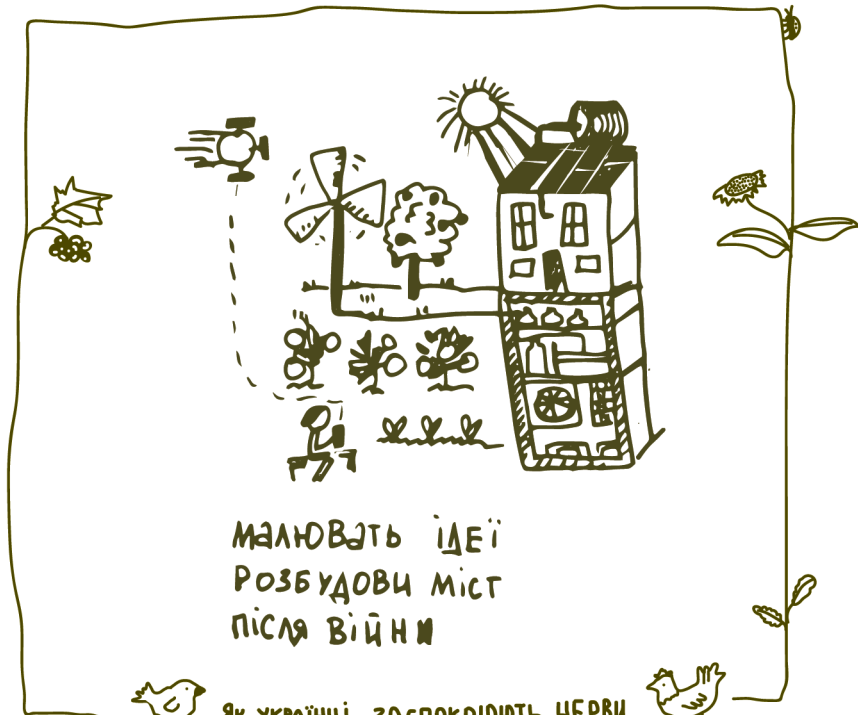 малювать ідеї
розбудови міст
після війни
як українці заспокоюють нерви